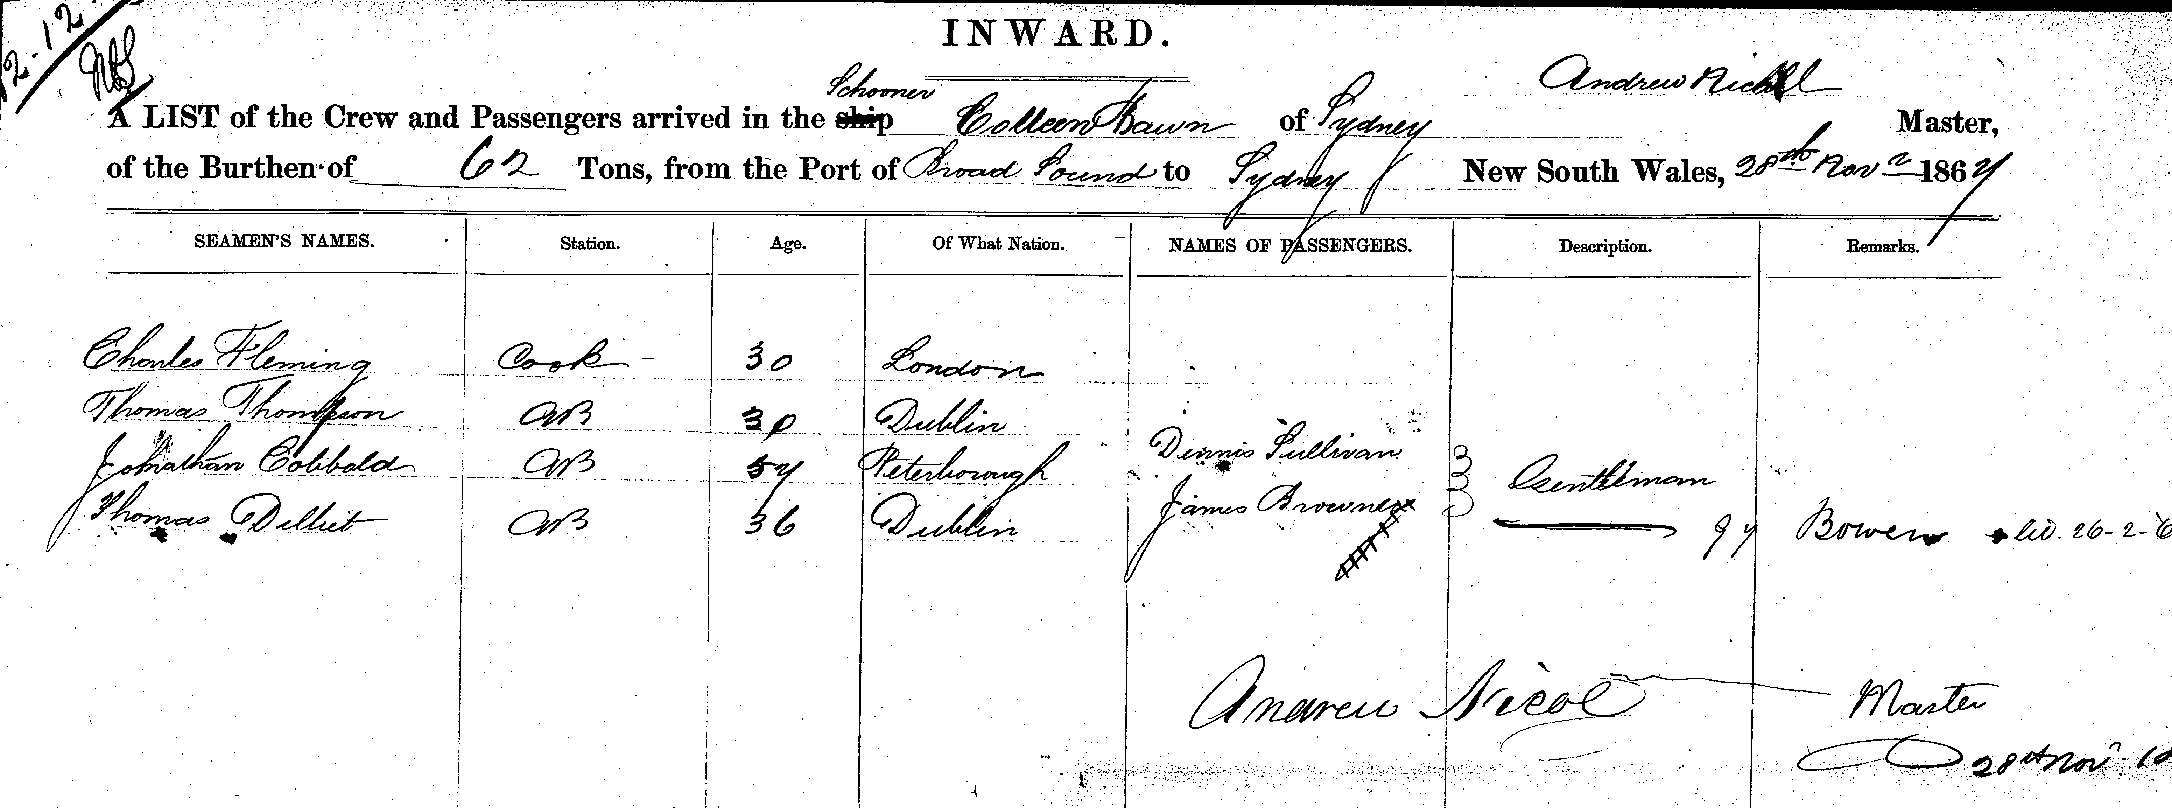 2.12.
INWARD.
Schooner
Andrew Nichol
A LIST of the Crew and Passengers arrived in the ship Colleen Bawn of Sydney Master,
of the Burthen of 62 Tons, from the Port of Broad Sound to Sydney New South Wales, 28th Novr 1864
SEAMEN'S NAMES. Station. Age. Of What Nation. NAMES OF PASSENGERS. Description. Remarks.
Charles Fleming Cook 30 London
Thomas Thompson AB 30 Dublin
Dennis Sullivan
Jonathan Cobbald AB 54 Peterborough Gentleman
James Browne
Thomas Dilliet AB 36 Dublin
Bowen 26-2-6
Andrew Nicol Master
28th Nov